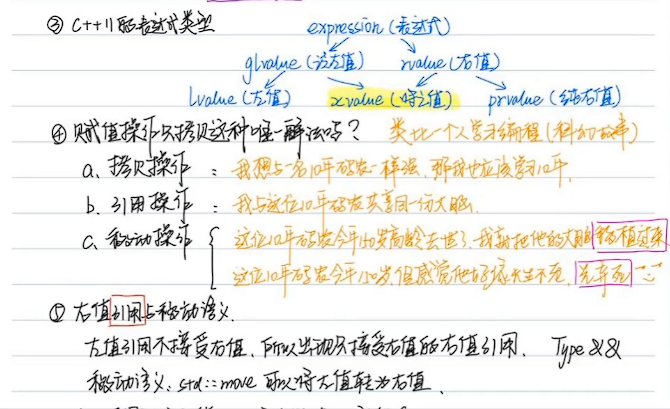 ③ C++11的表达式类型
expression (表达式)
glvalue (泛左值) rvalue (右值)
lvalue (左值) xvalue (将亡值) prvalue (纯右值)
④ 赋值操作只拷贝这种唯一解法吗？ 类比一个人学习编程 (科幻故事)
a. 拷贝操作 : 我想与一名10年码农一样强，那我也应该学习10年.
b. 引用操作 : 我与这位10年码农共享同一份大脑.
c. 移动操作 { 这位10年码农今年150岁高龄去世了，我就把他的大脑移植过来
这位10年码农今年150岁，但感觉他好像长生不死，
⑤ 右值引用与移动语义.
左值引用不接受右值，所以出现只接受右值的右值引用. Type &&
移动语义: std::move 可以将左值转为右值.